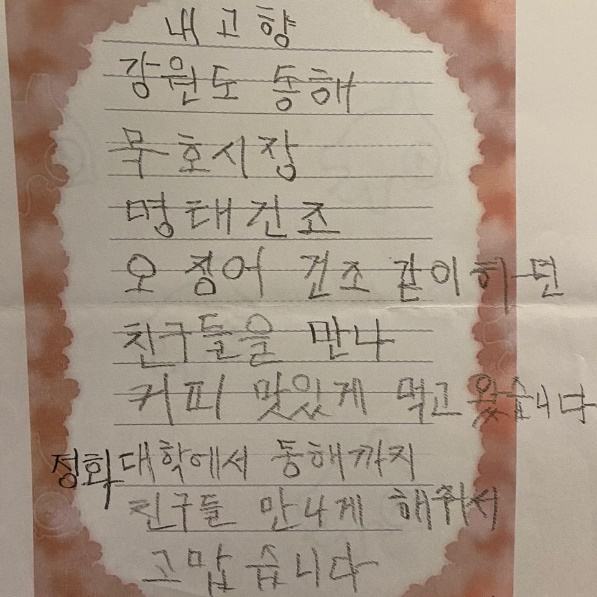 내 고향
강원도 동해
묵호시장
명태건조
오징어 건조 같이하던
친구들을 만나
커피 맛있게 먹고 왔습니다
정화대학에서 동해까지
친구들 만나게 해줘서
고맙습니다